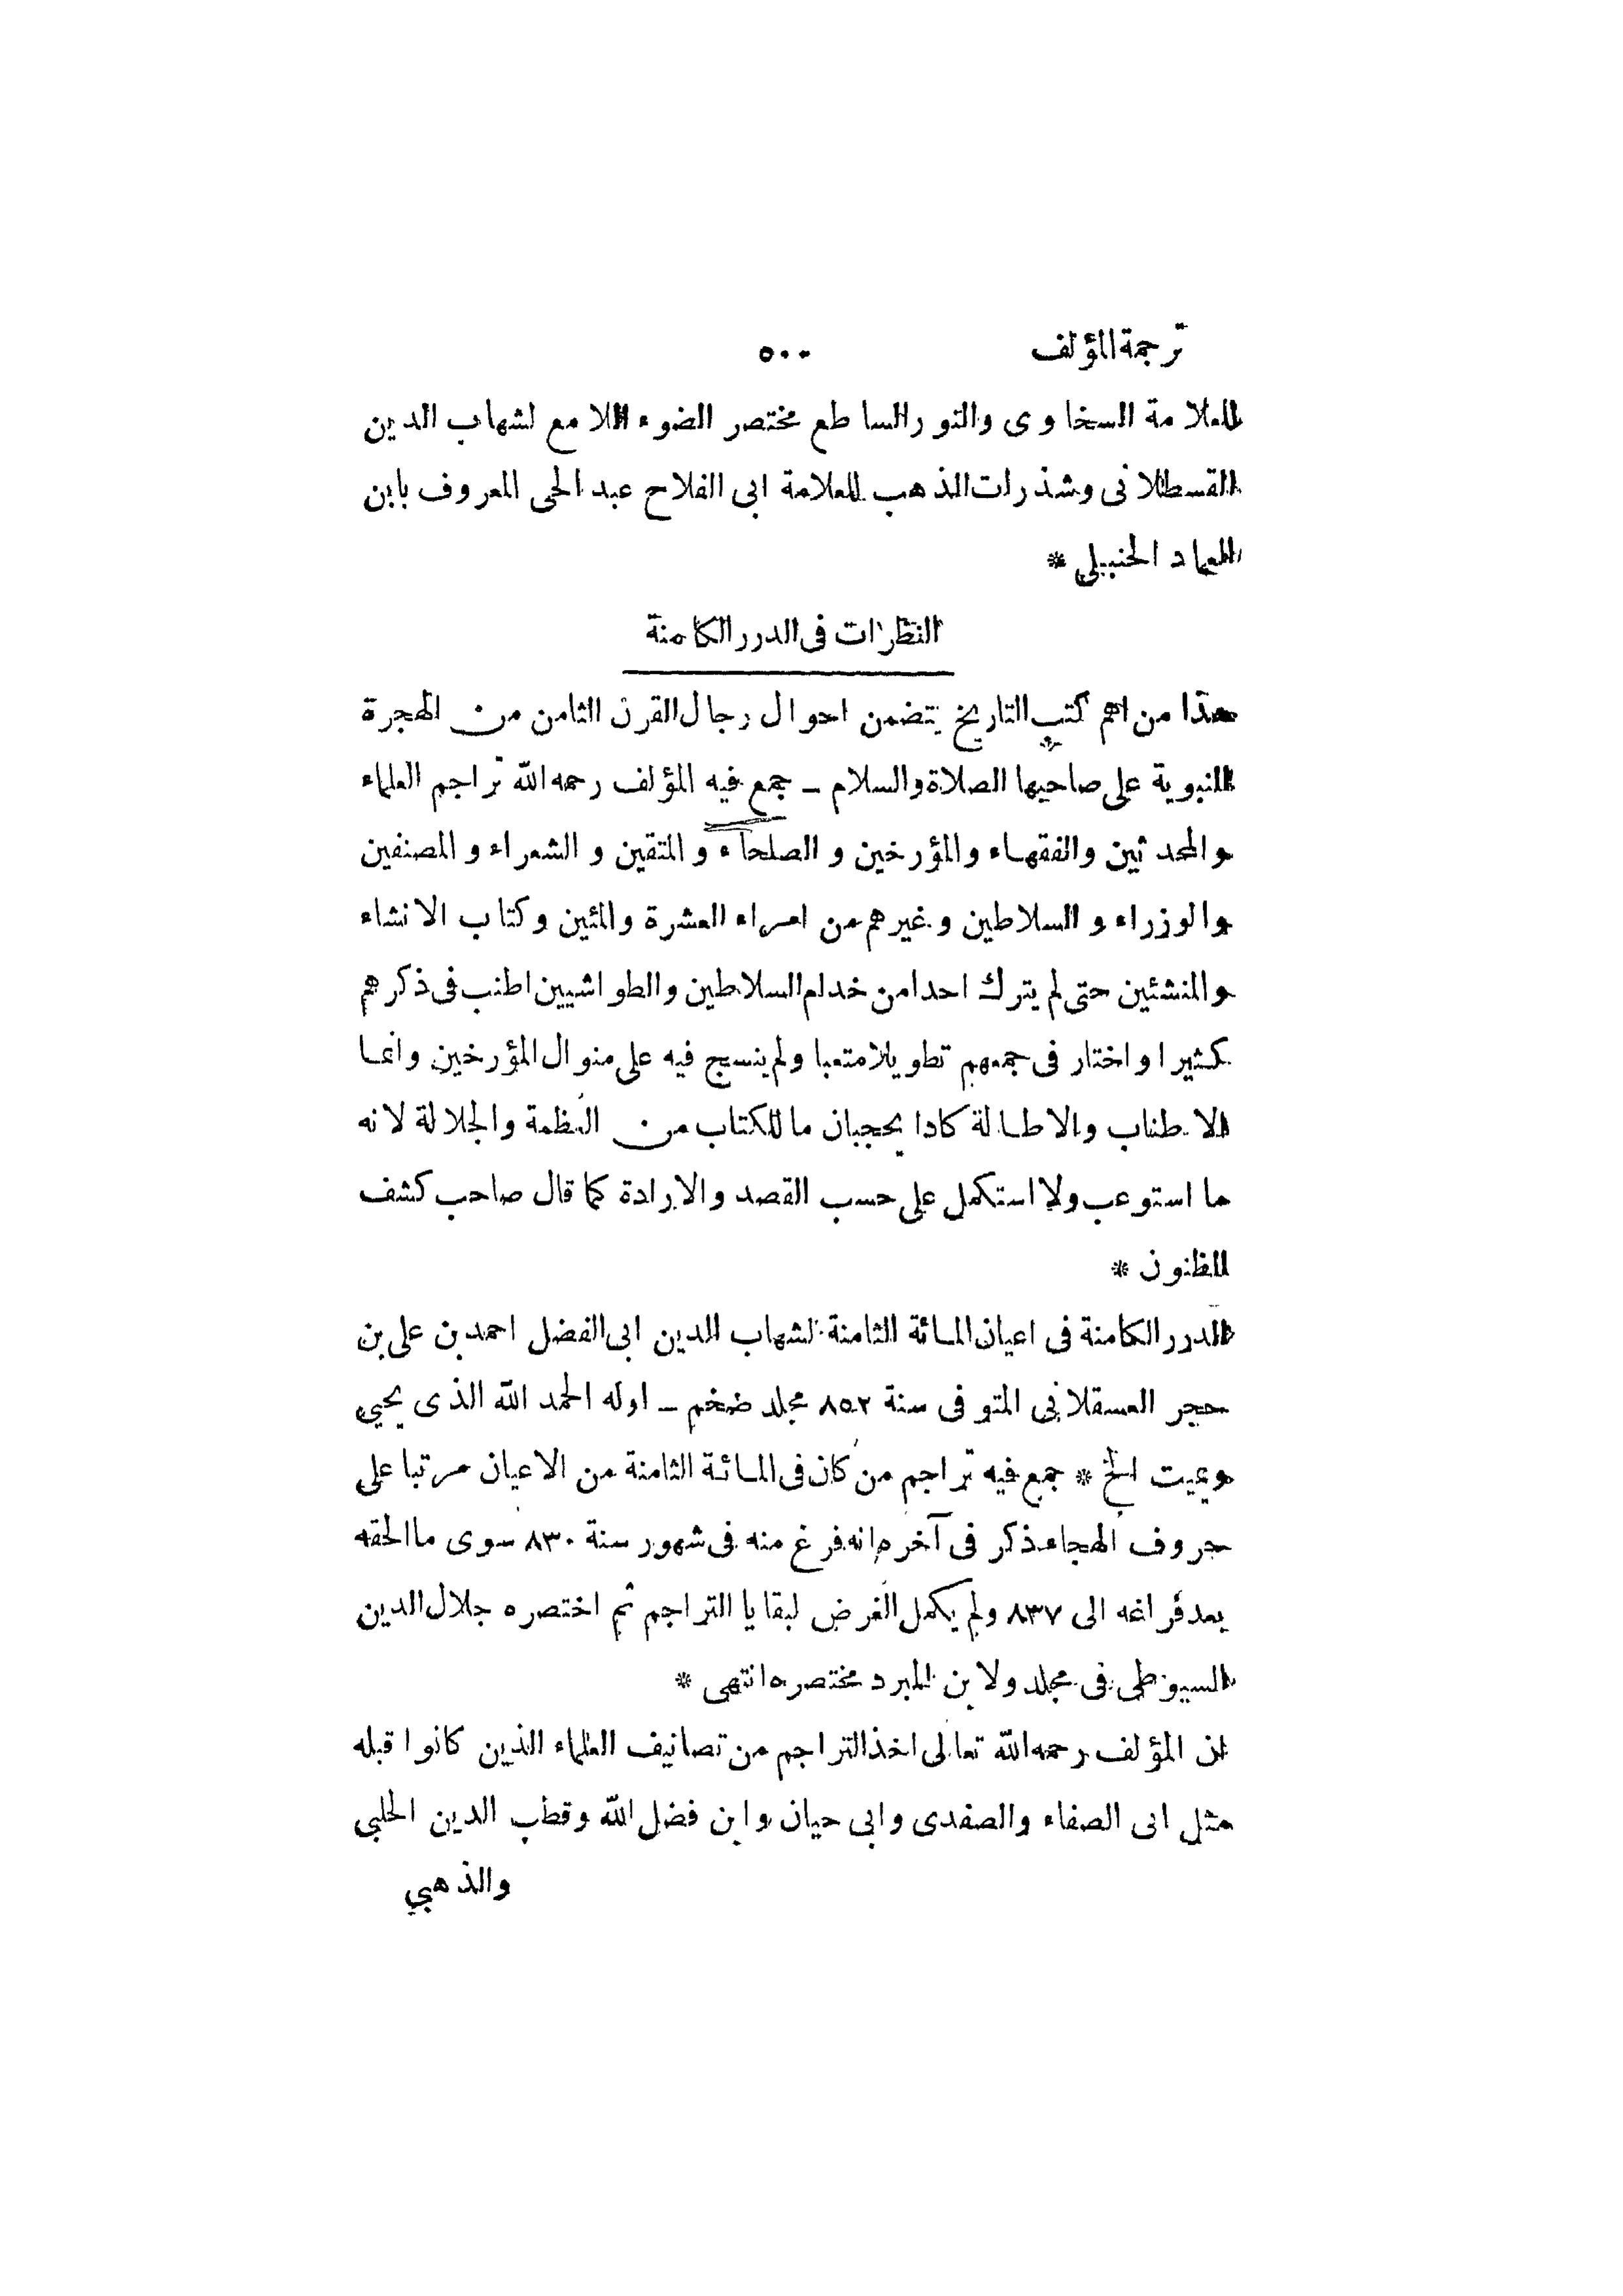 ترجمة المؤلف ٥٠٠
للعلامة السخاوى والنور الساطع مختصر الضوء اللامع لشهاب الدين
القسطلانى وشذرات الذهب للعلامة ابى الفلاح عبد الحى المعروف بابن
العماد الحنبيلى *
النظرات فى الدرر الكامنة
هذا من اهم كتب التاريخ يتضمن احوال رجال القرن الثامن من الهجرة
النبوية على صاحبها الصلاة والسلام – جمع فيه المؤلف رحمه الله تراجم العلماء
والمحدثين والفقهاء والمؤرخين والصلحاء والمتقين والشعراء والمصنفين
والوزراء والسلاطين وغيرهم من امراء العشرة والمئين وكتاب الانشاء
والمنشئين حتى لم يترك احدا من خدام السلاطين والطواشيين اطنب فى ذكرهم
كثيرا واختار فى جمعهم تطويلا متعبا ولم ينسج فيه على منوال المؤرخين وانما
الاطناب والاطالة كادا يحجبان ما للكتاب من العظمة والجلالة لانه
ما استوعب ولا استكمل على حسب القصد والارادة كما قال صاحب كشف
الظنون *
الدرر الكامنة فى اعيان المائة الثامنة لشهاب الدين ابى الفضل احمد بن على بن
حجر العسقلانى المتوفى سنة ٨٥٢ مجلد ضخم – اوله الحمد الله الذى يحيى
ويميت الخ * جمع فيه تراجم من كان فى المائة الثامنة من الاعيان مرتبا على
حروف الهجاء ذكر فى آخره انه فرغ منه فى شهور سنة ٨٣٠ سوى ما الحقه
بعد فراغه الى ٨٣٧ ولم يكمل الغرض لبقايا التراجم ثم اختصره جلال الدين
السيوطى فى مجلد ولابن المبرد مختصره انتهى *
ان المؤلف رحمه الله تعالى اخذ التراجم من تصانيف العلماء الذين كانوا قبله
مثل ابى الصفاء والصفدى وابى حيان وابن فضل الله وقطب الدين الحلبى
والذهبي